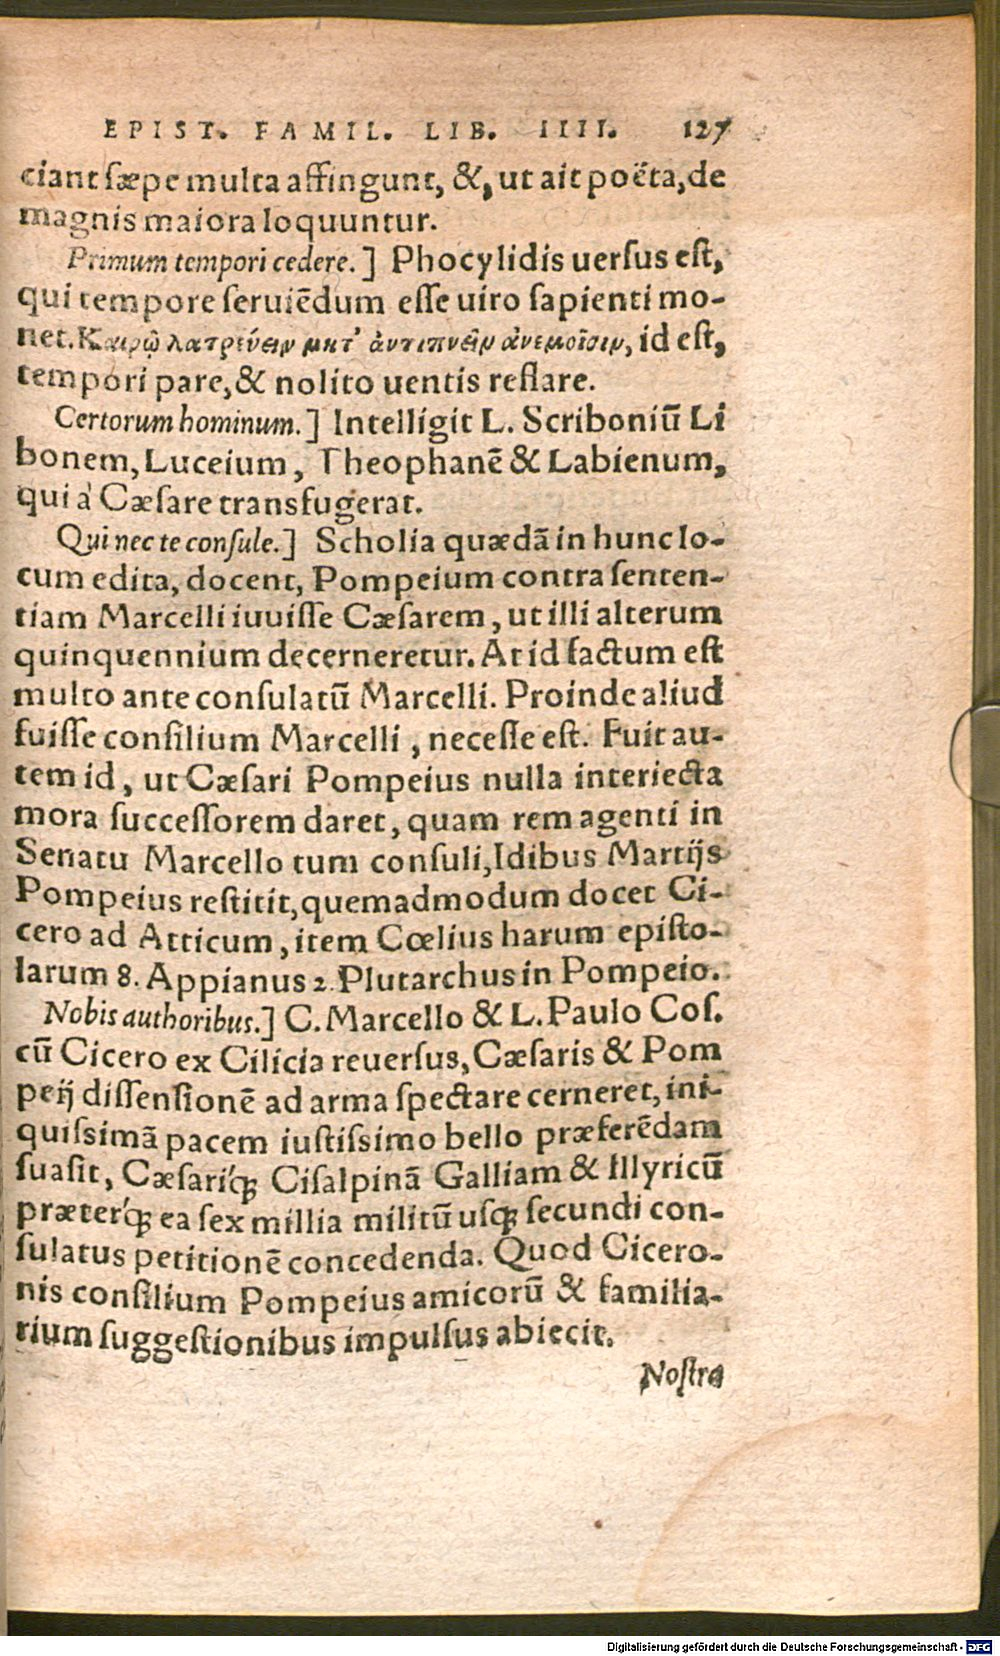 EPIST. FAMIL. LIB. IIII. 127
ciant sæpe multa affingunt, &, ut ait poëta, de
magnis maiora loquuntur.
Primum tempori cedere.] Phocylidis uersus est,
qui tempore seruiēdum esse uiro sapienti mo-
net. Καιρῷ λατρεύειν μητ' ἀντιπνεῖν ἀνεμοῖσιν, id est,
tempori pare, & nolito uentis reflare.
Certorum hominum.] Intelligit L. Scriboniū Li
bonem, Luceium, Theophanē & Labienum,
qui à Cæsare transfugerat.
Qui nec te consule.] Scholia quædā in hunc lo-
cum edita, docent, Pompeium contra senten-
tiam Marcelli iuuisse Cæsarem, ut illi alterum
quinquennium decerneretur. At id factum est
multo ante consulatū Marcelli. Proinde aliud
fuisse consilium Marcelli, necesse est. Fuit au-
tem id, ut Cæsari Pompeius nulla interiecta
mora successorem daret, quam rem agenti in
Senatu Marcello tum consuli, Idibus Martijs
Pompeius restitit, quemadmodum docet Ci-
cero ad Atticum, item Cœlius harum episto-
larum 8. Appianus 2. Plutarchus in Pompeio.
Nobis authoribus.] C. Marcello & L. Paulo Cos.
cū Cicero ex Cilicia reuersus, Cæsaris & Pom
peij dissensionē ad arma spectare cerneret, ini-
quissimā pacem iustissimo bello præferēdam
suasit, Cæsariq́; Cisalpinā Galliam & Illyricū
præterq́; ea sex millia militū usq; secundi con-
sulatus petitionē concedenda. Quod Cicero-
nis consilium Pompeius amicorū & familia-
rium suggestionibus impulsus abiecit.
Nostra
Digitalisierung gefördert durch die Deutsche Forschungsgemeinschaft - DFG